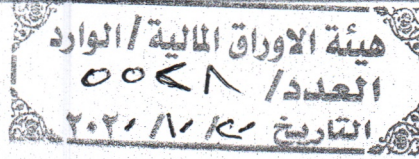 هيئة الاوراق المالية / الوارد
العدد/ ٥٥٢٨
التاريخ / ١٠ / ٢٠٢٠